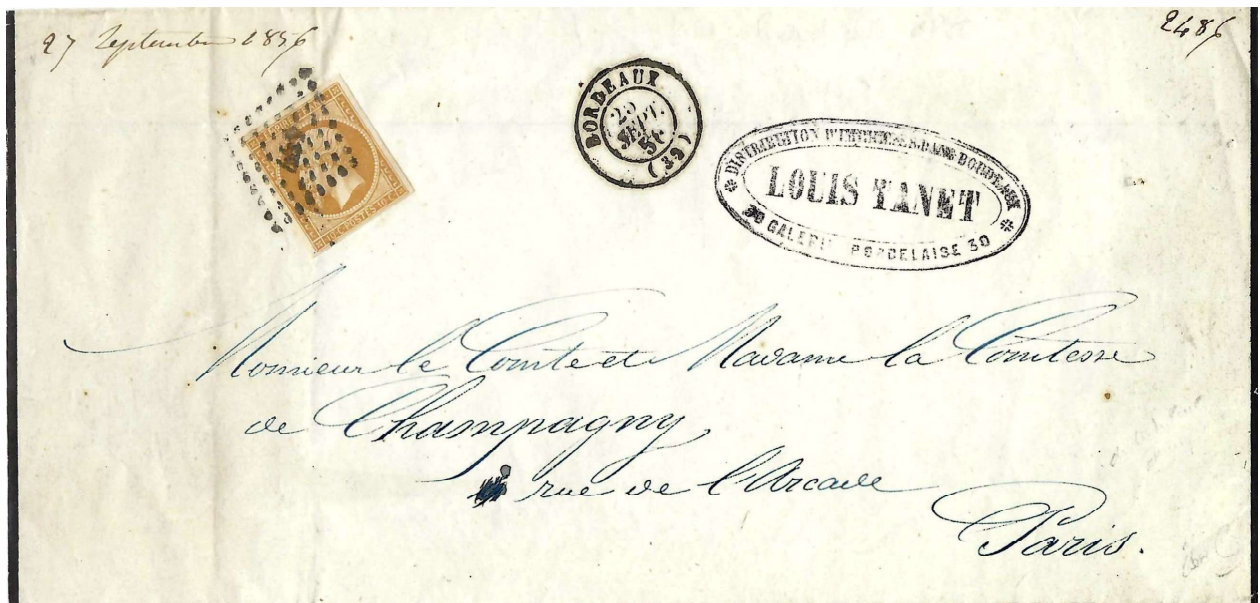 27 Septembre 1856
2486
EMPIRE FRANC
10 C. POSTES 10 C.
BORDEAUX
25
SEPT.
56
(32)
DISTRIBUTION D'IMPRIMÉS DANS BORDEAUX
LOUIS TANET
30 GALERIE BORDELAISE 30
Monsieur le Comte et Madame la Comtesse
de Champagny
rue de l'Arcade
Paris.